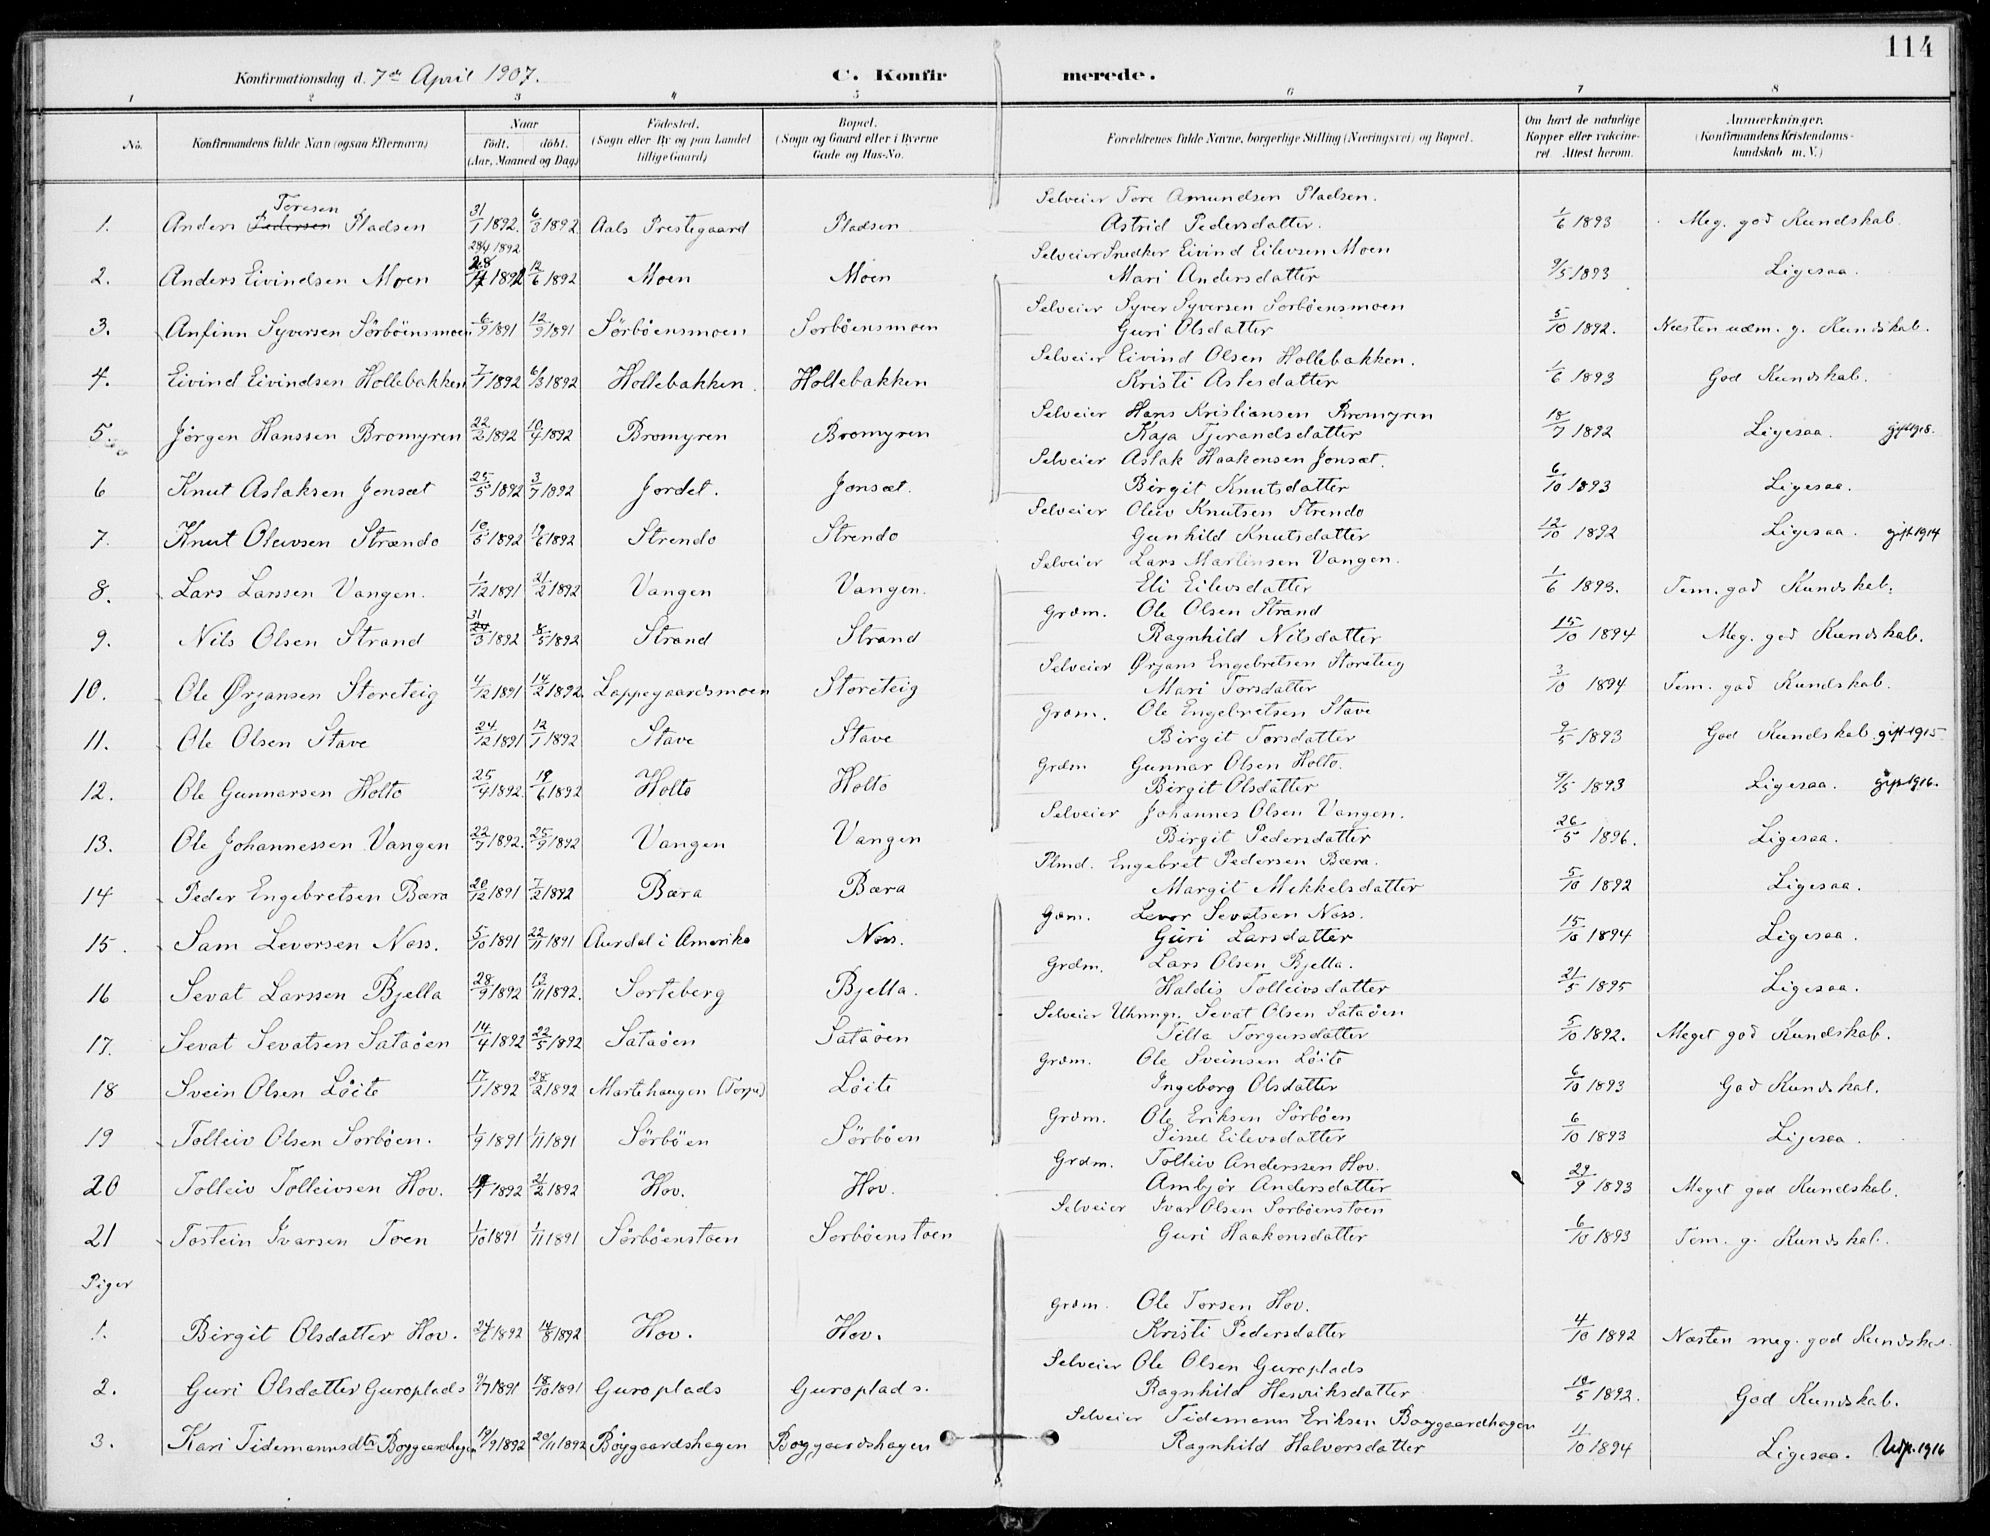 114
Konfirmationsdag d. 7de April 1907.
C. Konfirmerede.
1 2 3 4 5 6 7 8
No. Konfirmandens fulde Navn (ogsaa Efternavn) Naar født. døbt. (Aar, Maaned og Dag) Fødested. (Sogn eller By og paa Landet tillige Gaard) Bopæl. (Sogn og Gaard eller i Byerne Gade og Hus-No. Forældrenes fulde Navne, borgerlige Stilling (Næringsvei) og Bopæl. Om havt de naturlige Kopper eller vaccineret. Attest herom. Anmærkninger. (Konfirmandens Kristendomskundskab m. V.)
Toresen Selveier Tore Amundsen Pladsen.
1. Anders Pedersen Pladsen 31/1 1892. 6/3 1892 Aals Prestegaard Pladsen Astrid Pedersdatter. 1/6 1893 Meg. god Kundskab.
28/4 1892 Selveier Snedker Eivind Eilevsen Moen
2. Anders Eivindsen Moen 1892 12/6 1892 Moen Moen Mari Andersdatter 9/5 1893 Ligesaa.
Selveier Syver Syversen Sørbøensmoen
3. Anfinn Syversen Sörböensmoen 6/9 1891 12/9 1891 Sörböensmoen Sorböensmoen Guri Olsdatter 5/10 1892. Næsten udm. g. Kundskab.
Selveier Eivind Olsen Hollebakken.
4. Eivind Eivindsen Hollebakken 7/1 1892 6/3 1892 Hollebakken. Hollebakken Kristi Aslesdatter 1/6 1893 God Kundskab.
Selveier Hans Kristiansen Bromyren
5. Jörgen Hanssen Bromyren 22/2 1892 10/4 1892 Bromyren Bromyren Kaja Tjerandsdatter 18/7 1892 Ligesaa. gift 1918.
Selveier Aslak Haakonsen Jonsæt.
6 Knut Aslaksen Jonsæt 25/5 1892 3/7 1892 Jordet. Jonsæt. Birgit Knutsdatter 6/10 1893 Ligesaa.
Selveier Oleiv Knutsen Strendo
7. Knut Oleivsen Strændo 10/5 1892 19/6 1892 Strendo Strendo Gunhild Knutsdatter 12/10 1892 Ligesaa. gift 1914
Selveier Lars Martinsen Vangen.
8. Lars Larssen Vangen. 1/12 1891 21/2 1892 Vangen Vangen. Eli Eilevsdatter 1/6 1893. Tem. god Kundskab.
31 Grdm. Ole Olsen Strand
9. Nils Olsen Strand /3 1892 8/5 1892 Strand Strand Ragnhild Nilsdatter 15/10 1894 Meg. god Kundskab.
Selveier Ørjans Engebretsen Storeteig
10. Ole Ørjansen Storeteig 4/12 1891 14/2 1892. Loppegaardsmoen Storeteig Mari Torsdatter 3/10 1894 Tem. god Kundskab.
Grdm. Ole Engebretsen Stave
11. Ole Olsen Stave 24/12 1891 12/1 1892 Stave Stave Birgit Torsdatter 9/5 1893 God Kundskab gift 1915
Grdm Gunnar Olsen Holto.
12. Ole Gunnarsen Holto 25/4 1892. 19/6 1892 Holto Holto Birgit Olsdatter 9/5 1893 Ligesaa. gift 1916.
Selveier Johannes Olsen Vangen.
13. Ole Johannessen Vangen 22/7 1892. 25/9 1892 Vangen Vangen Birgit Pedersdatter 26/5 1896. Ligesaa.
Plmd. Engebret Pedersen Bæra.
14 Peder Engebretsen Bæra 20/12 1891 7/2 1892 Bæra Bæra Margit Mikkelsdatter 5/10 1892 Ligesaa.
Grdm. Levor Sevatsen Næss.
15. Sam Levorsen Næss. 5/10 1891 22/11 1891 Aurdal i Amerika Næss. Guri Larsdatter 15/10 1894 Ligesaa.
Grdm. Lars Olsen Bjella.
16 Sevat Larssen Bjella 28/9 1892 13/11 1892. Sorteberg Bjella. Haldis Tolleivsdatter 21/5 1895 Ligesaa.
Selveier Uhrmgr. Sevat Olsen Sataöen
17. Sevat Sevatsen Sataöen 14/4 1892 22/5 1892 Sataöen Sataöen Tilla Torgersdatter 5/10 1892. Meget god Kundskab.
Grdm. Ole Sveinsen Löite
18 Svein Olsen Löite 17/1 1892 28/2 1892 Martehaugen (Torpe) Löite Ingeborg Olsdatter 6/10 1893 God Kundskab.
Grdm. Ole Eriksen Sörböen
19 Tolleiv Olsen Sorböen. 1/9 1891 1/11 1891 Sörböen Sörböen Sissel Eilevsdatter 6/10 1893 Ligesaa.
Grdm. Tolleiv Anderssen Hov.
20 Tolleiv Tolleivsen Hov. /1 1892 21/2 1892 Hov. Hov. Ambjör Andersdatter 29/9 1893 Meget god Kundskab.
Selveier Ivar Olsen Sorböenstoen
21 Tostein Ivarsen Toen 1/10 1891 1/11 1891 Sörböenstoen Sorböenstoen Guri Haakonsdatter 6/10 1893 Tem. g. Kundskab.
Piger
Grdm. Ole Torsen Hov.
1. Birgit Olsdatter Hov. 24/6 1892 14/8 1892 Hov. Hov. Kristi Pedersdatter 4/10 1892 Næsten meg. god Kundskab.
Selveier Ole Olsen Guroplads
2. Guri Olsdatter Guroplads 9/7 1891 18/10 1891 Guroplads Guroplads. Ragnhild Henriksdatter 10/5 1892. God Kundskab.
Selveier Tidemann Eriksen Boygaardhagen
3. Kari Tidemannsdtr Boygaardhagen 19/9 1892 20/11 1892 Böygaardshagen Boygaardshagen Ragnhild Halvorsdatter 11/10 1894 Ligesaa. Udfl. 1916